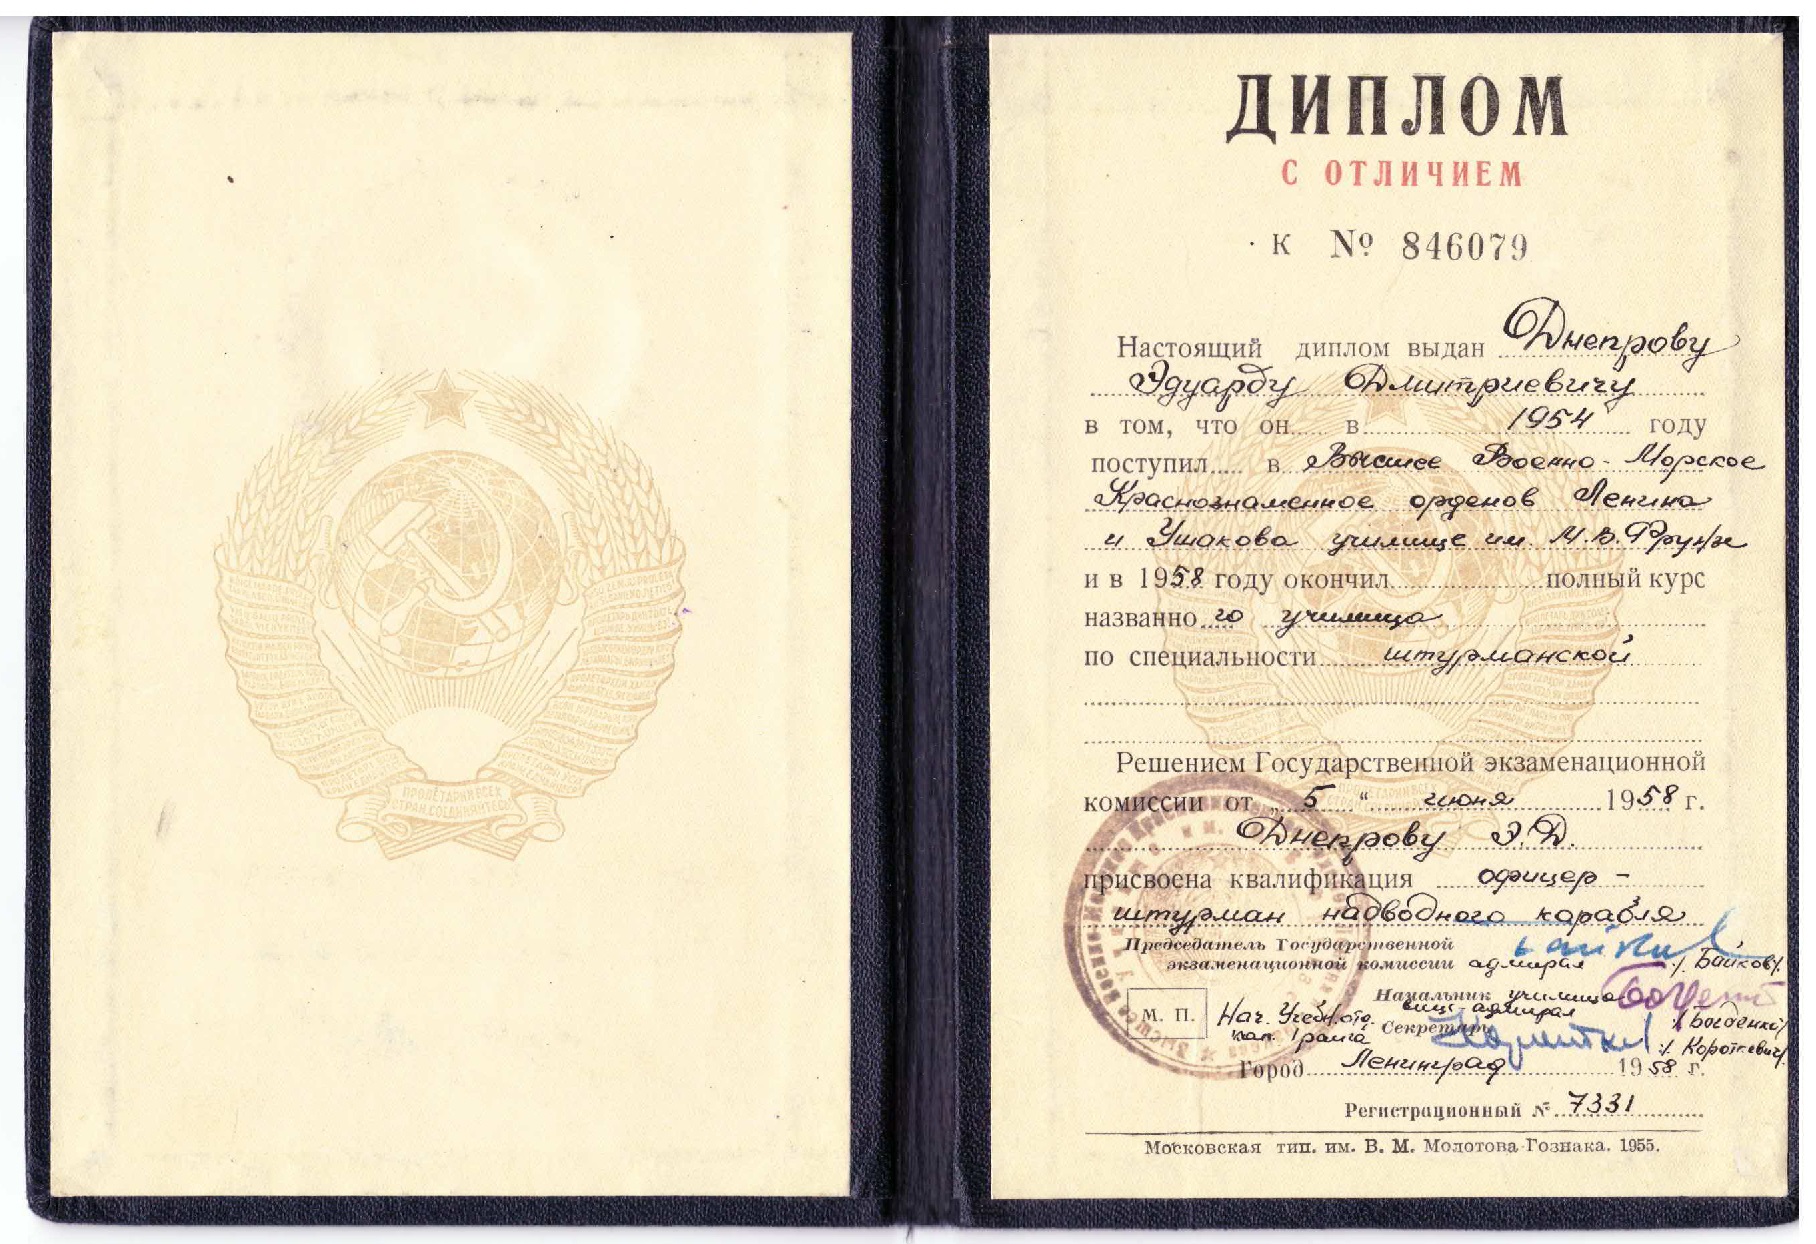 ПРОЛЕТАРИИ ВСЕХ
СТРАН, СОЕДИНЯЙТЕСЬ!
ДИПЛОМ
С ОТЛИЧИЕМ
К № 846079
Настоящий диплом выдан Днепрову
Эдуарду Дмитриевичу
в том, что он в 1954 году
поступил в Высшее Военно-Морское
Краснознаменное орденов Ленина
и Ушакова училище им. М.В.Фрунзе
и в 1958 году окончил полный курс
названного училища
по специальности штурманской
Решением Государственной экзаменационной
комиссии от „5“ июня 1958 г.
Днепрову Э.Д.
присвоена квалификация офицер-
штурман надводного корабля
Председатель Государственной
экзаменационной комиссии адмирал /Байков/
Начальник училища
вице-адмирал /Богденко/
М. П. Нач. Учебн. ото. Секретарь
кап. 1 ранга /Короткевич/
Город Ленинград 1958 г.
Регистрационный № 7331
Московская тип. им. В. М. Молотова Гознака. 1955.